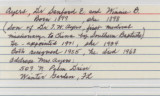 Ayers, Dr. Sanford E. and Winnie B.
Born 1899 abt 1898
(Son of Dr. T. W. Ayers, first medical
missionary to China by Southern Baptists)
Dr. - appointed 1921, she 1924
Both resigned 1955 Dr. died 1963
Address Mrs Ayers:
507 N. Palm Drive
Winter Garden, Fl